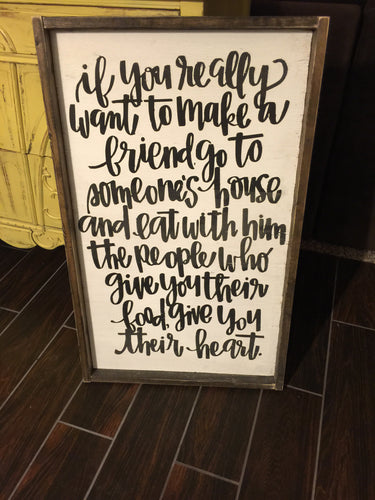 if you really
want to make a
friend go to
someone's house
and eat with him
the people who
give you their
food, give you
their heart.